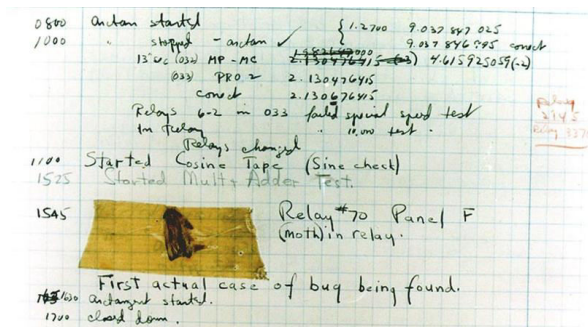 0800 antan started
1000 " stopped - antan ✓
{ 1.2700 9.037 847 025
9.037 846 995 conect
13"uc (032) MP - MC 2.130476415 (-3) 4.615925059(-2)
(033) PRO 2 2.130476415
conect 2.130676415
Relays 6-2 in 033 failed special speed test
In Relay " 10.000 test.
Relay
2145
Relay 3370
Relays changed
1100 Started Cosine Tape (Sine check)
1525 Started Mult+ Adder Test.
1545 Relay #70 Panel F
(moth) in relay.
First actual case of bug being found.
1630 antangent started.
1700 closed down.